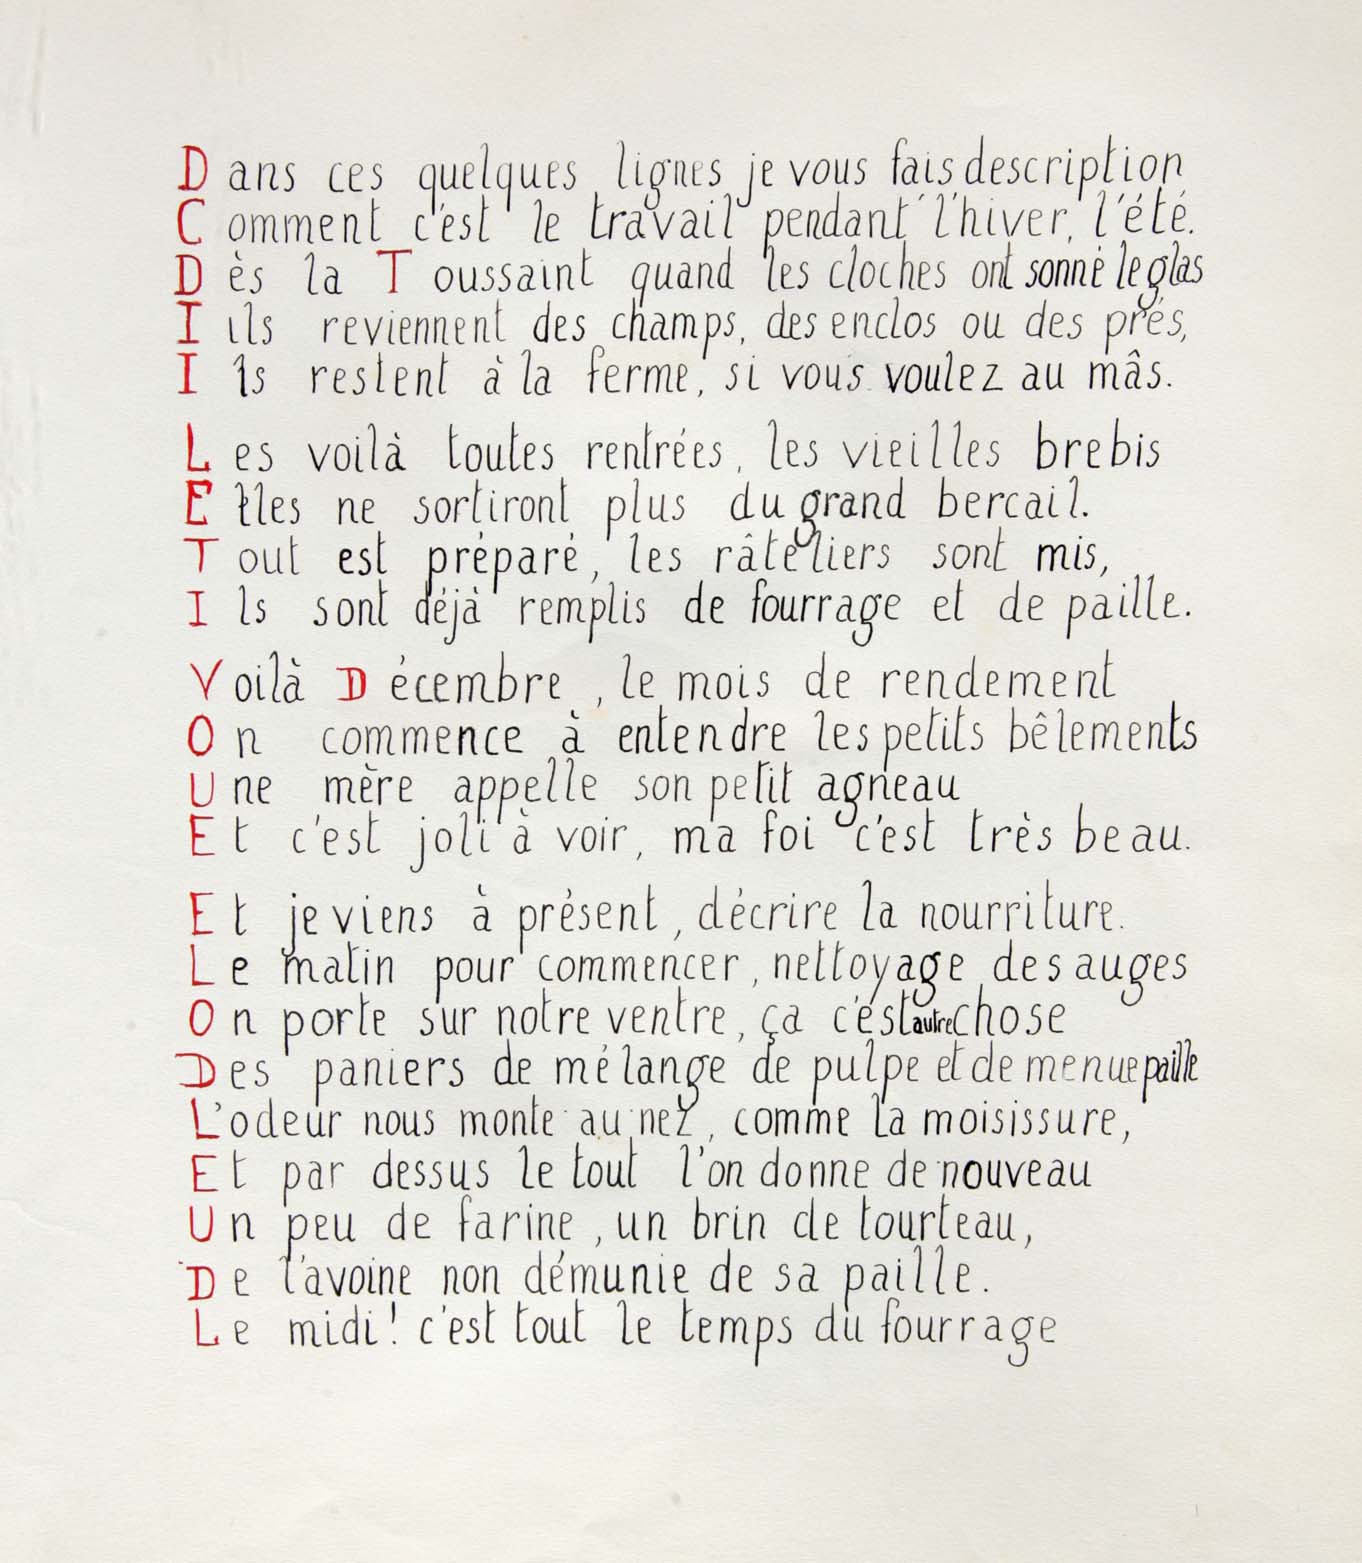 Dans ces quelques lignes je vous fais description
Comment c'est le travail pendant l'hiver, l'été.
Dès la Toussaint quand les cloches ont sonné le glas
Iils reviennent des champs, des enclos ou des prés,
Ils restent à la ferme, si vous voulez au mâs.
Les voilà toutes rentrées, les vieilles brebis
Elles ne sortiront plus du grand bercail.
Tout est préparé, les râteliers sont mis,
Ils sont déjà remplis de fourrage et de paille.
Voilà Décembre, le mois de rendement
On commence à entendre les petits bêlements
Une mère appelle son petit agneau
Et c'est joli à voir, ma foi c'est très beau.
Et je viens à présent, décrire la nourriture.
Le matin pour commencer, nettoyage des auges
On porte sur notre ventre, ça c'est autre chose
Des paniers de mélange de pulpe et de menue paille
L'odeur nous monte au nez, comme la moisissure,
Et par dessus le tout l'on donne de nouveau
Un peu de farine, un brin de tourteau,
De l'avoine non démunie de sa paille.
Le midi! c'est tout le temps du fourrage